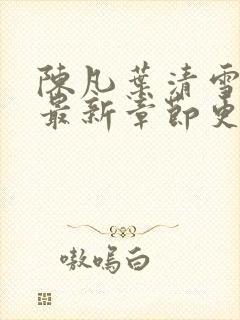 陳凡葉清雪
最新章節更
嗷嗚白